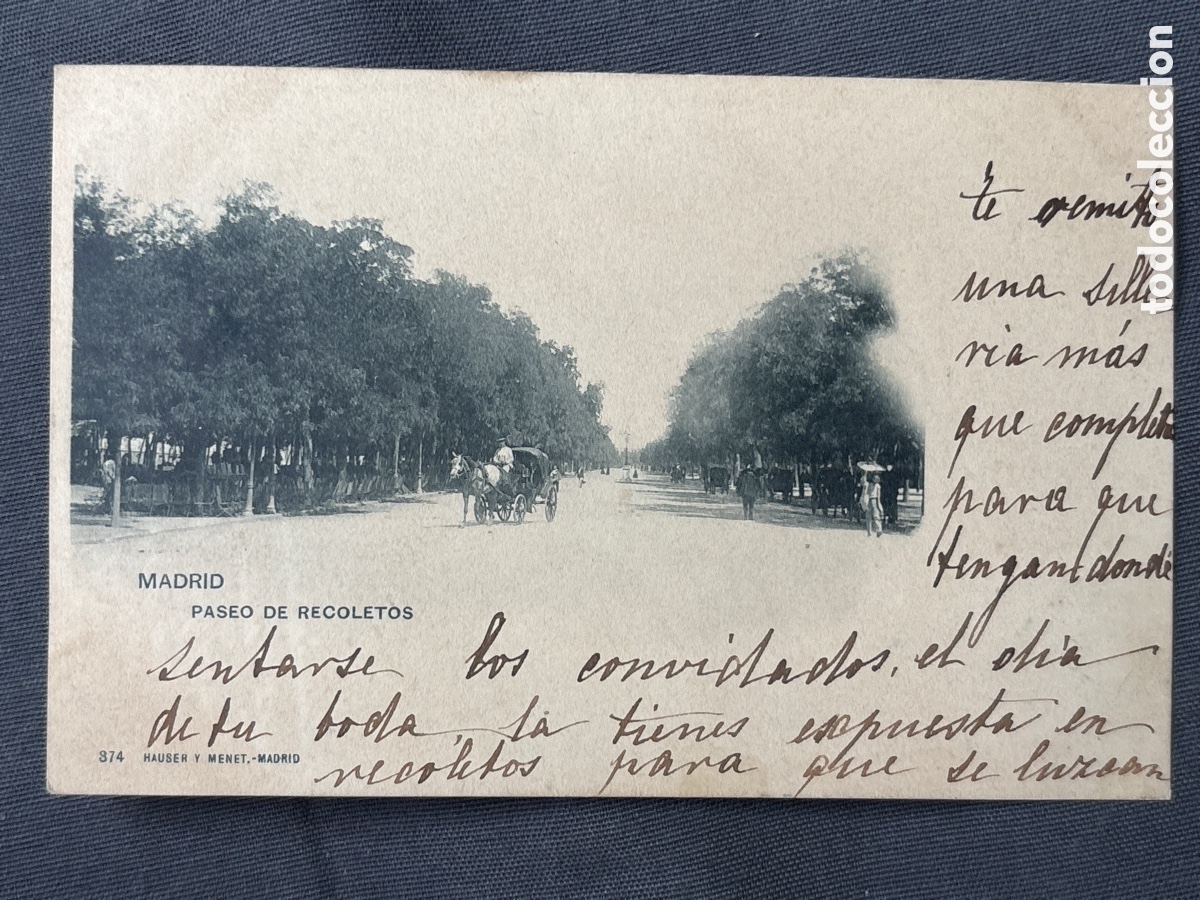 te remito
una sille
ria más
que completa
para que
tengan donde
MADRID
PASEO DE RECOLETOS
sentarse los convidados, el dia
de tu boda, la tienes expuesta en
374 HAUSER Y MENET.-MADRID
recoletos para que se luzcan
todocoleccion